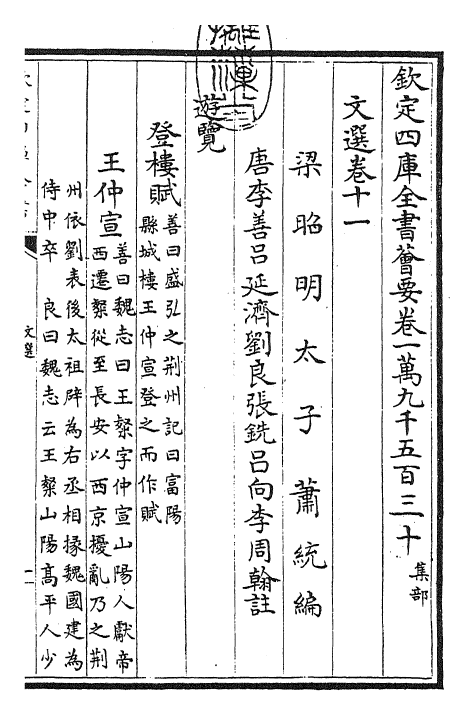 欽定四庫全書薈要卷一萬九千五百三十
集部
文選卷十一
梁昭明太子蕭統編
唐李善吕延濟劉良張銑吕向李周翰註
遊覽
登樓賦
善曰盛弘之荆州記曰富陽
縣城樓王仲宣登之而作賦
王仲宣
善曰魏志曰王粲字仲宣山陽人獻帝
西遷粲從至長安以西京擾亂乃之荆
州依劉表後太祖辟為右丞相掾魏國建為
侍中卒 良曰魏志云王粲山陽髙平人少
文選